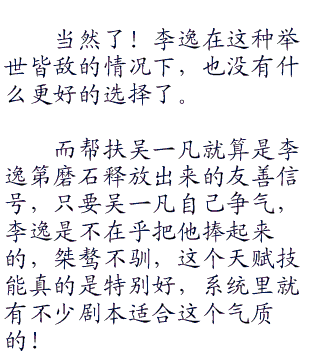 当然了！李逸在这种举
世皆敌的情况下，也没有什
么更好的选择了。
而帮扶吴一凡就算是李
逸第磨石释放出来的友善信
号，只要吴一凡自己争气，
李逸是不在乎把他捧起来
的，桀骜不驯，这个天赋技
能真的是特别好，系统里就
有不少剧本适合这个气质
的！